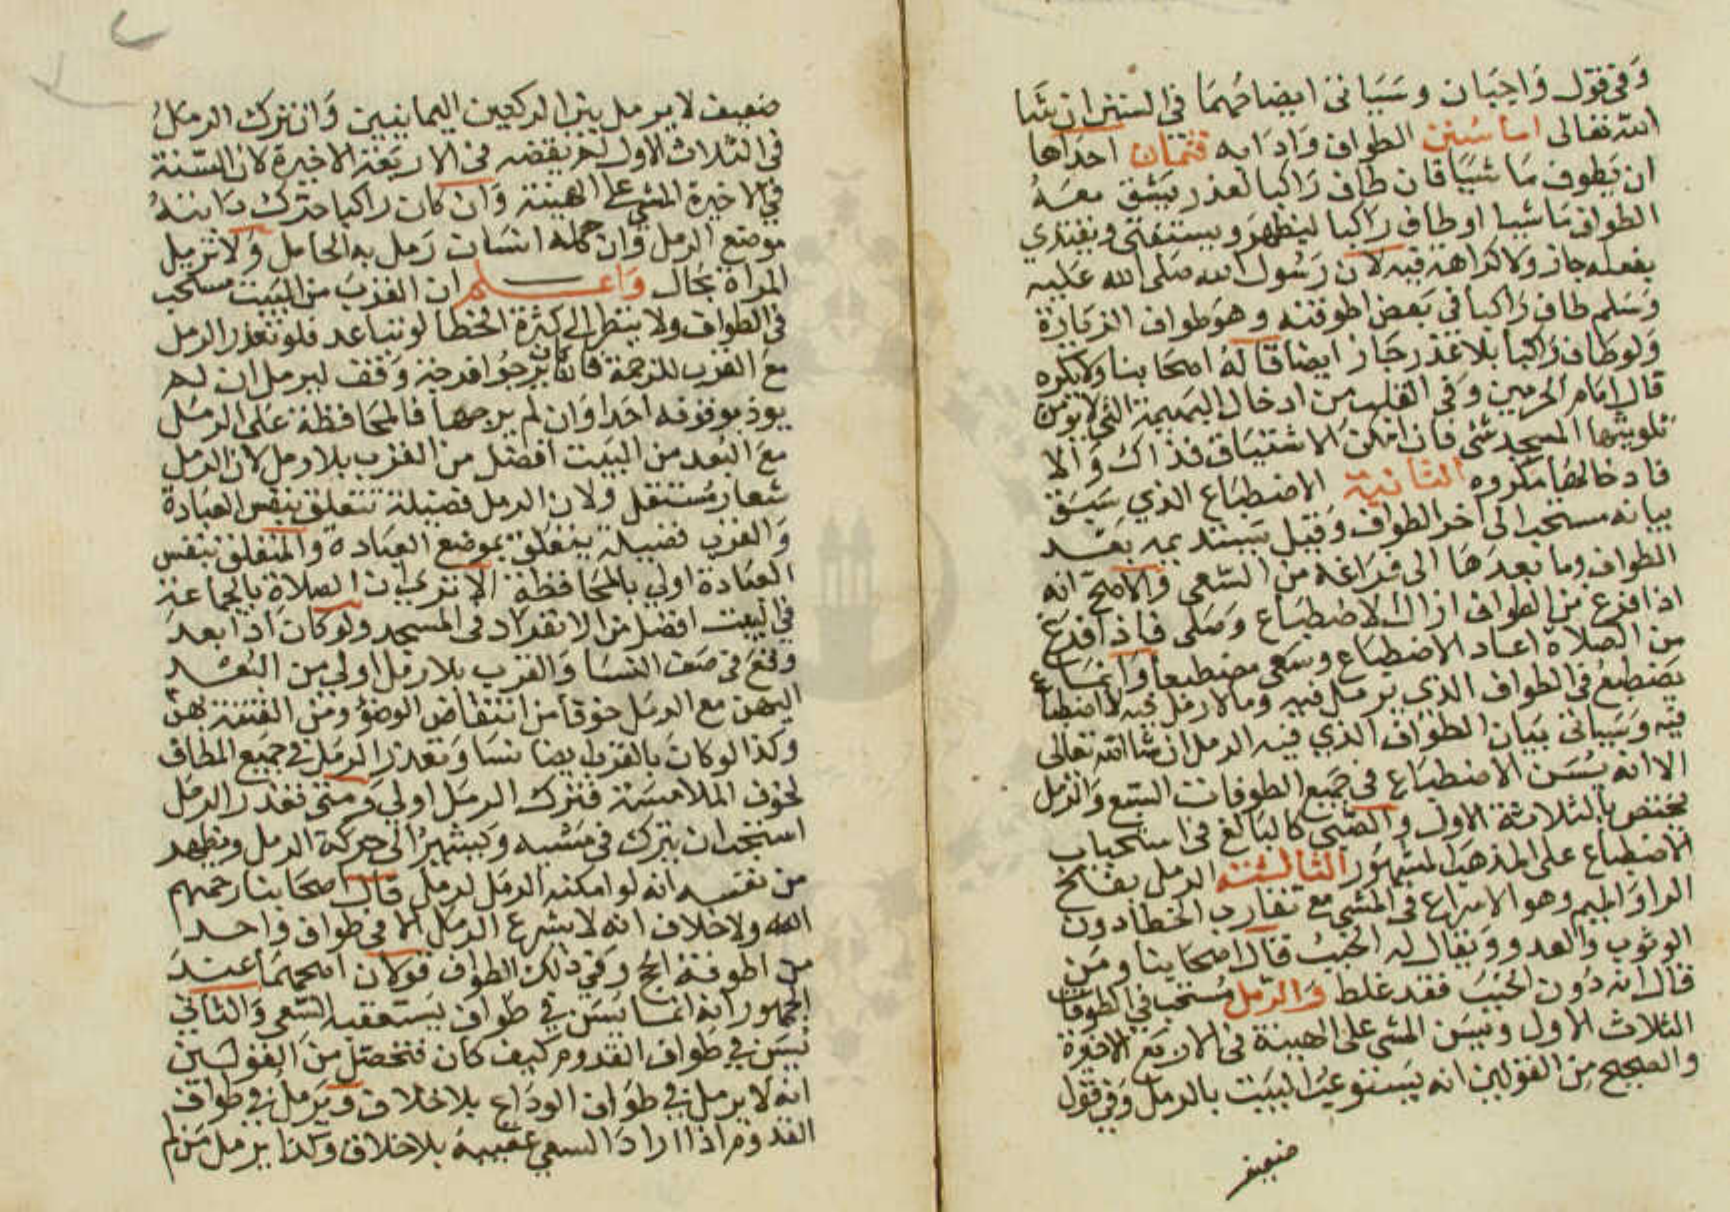 وفي قول واجبان وسياتي ايضاحهما في السنن ان شا
الله تعالى اما سنن الطواف وادابه فثمان احداها
ان يطوف ماشيا فان طاف راكبا لعذر يشق معه
الطواف ماشيا او طاف راكبا ليظهر ويستفتى ويقتدي
بفعله جاز ولا كراهة فيه لان رسول الله صلى الله عليه
وسلم طاف راكبا في بعض اطوفته وهو طواف الزيارة
ولو طاف راكبا بلا عذر جاز ايضا قاله اصحابنا ولا يكره
قال امام الحرمين وفي القلب من ادخال البهيمة التي لا يومن
تلويثها المسجد شي فان امكن الاستيثاق فذاك والا
فادخالها مكروه الثانية الاضطباع الذي سبق
بيانه مستحب الى اخر الطواف وقيل يستديمه بعد
الطواف وما بعدها الى فراغه من السعي والاصح انه
اذا فرغ من الطواف ازال الاضطباع وصلى فاذا فرغ
من الصلاة اعاد الاضطباع وسعى مضطبعا وانما
يضطبع في الطواف الذي يرمل فيه وما لا رمل فيه لا اضطباع
فيه وسياتي بيان الطواف الذي فيه الرمل ان شا الله تعالى
الا انه يسن الاضطباع في جميع الطوفات السبع والرمل
يختص بالثلاثة الاول والصبي كالبالغ في استحباب
الاضطباع على المذهب المشهور الثالثة الرمل بفتح
الرا والميم وهو الاسراع في المشي مع تقارب الخطا دون
الوثوب والعدو ويقال له الخبب قال اصحابنا ومن
قال انه دون الخبب فقد غلط والرمل مستحب في الطوفات
الثلاث الاول ويسن المشي على الهينة في الاربع الاخيرة
والصحيح من القولين انه يستوعب البيت بالرمل وفي قول
ضعيف
ضعيف لا يرمل بين الركنين اليمانيين وان ترك الرمل
في الثلاث الاول لم يقضه في الاربعة الاخيرة لان السنة
في الاخيرة المشي على الهينة وان كان راكبا حرك دابته
موضع الرمل وان حمله انسان رمل به الحامل ولا ترمل
المراة بحال واعلم ان القرب من البيت مستحب
في الطواف ولا ينظر الى كثرة الخطا لو تباعد فلو تعذر الرمل
مع القرب للزحمة فان كان يرجو فرجة وقف ليرمل ان لم
يوذ بوقوفه احدا وان لم يرجها فالمحافظة على الرمل
مع البعد من البيت افضل من القرب بلا رمل لان الرمل
شعار مستقل ولان الرمل فضيلة تتعلق بنفس العبادة
والقرب فضيلة يتعلق بموضع العبادة والمتعلق بنفس
العبادة اولي بالمحافظة الا تري ان الصلاة بالجماعة
في البيت افضل من الانفراد في المسجد ولو كان اذا بعد
وقع في صف النسا والقرب بلا رمل اولي من البعد
اليهن مع الرمل خوفا من انتقاض الوضو ومن الفتنة بهن
وكذا لو كان بالقرب ايضا نسا وتعذر الرمل في جميع المطاف
لخوف الملامسة فترك الرمل اولي ومتى تعذر الرمل
استحب ان يتحرك في مشيه ويشير الى حركة الرمل ويظهر
من نفسه انه لو امكنه الرمل لرمل قال اصحابنا رحمهم
الله ولا خلاف انه لا يشرع الرمل الا في طواف واحد
من اطوفة الحج وفي ذلك الطواف قولان اصحهما عند
الجمهور انه انما يسن في طواف يستعقبه السعي والثاني
يسن في طواف القدوم كيف كان فتحصل من القولين
انه لا يرمل في طواف الوداع بلا خلاف ويرمل في طواف
القدوم اذا اراد السعي عقيبه بلا خلاف وكذا يرمل من لم